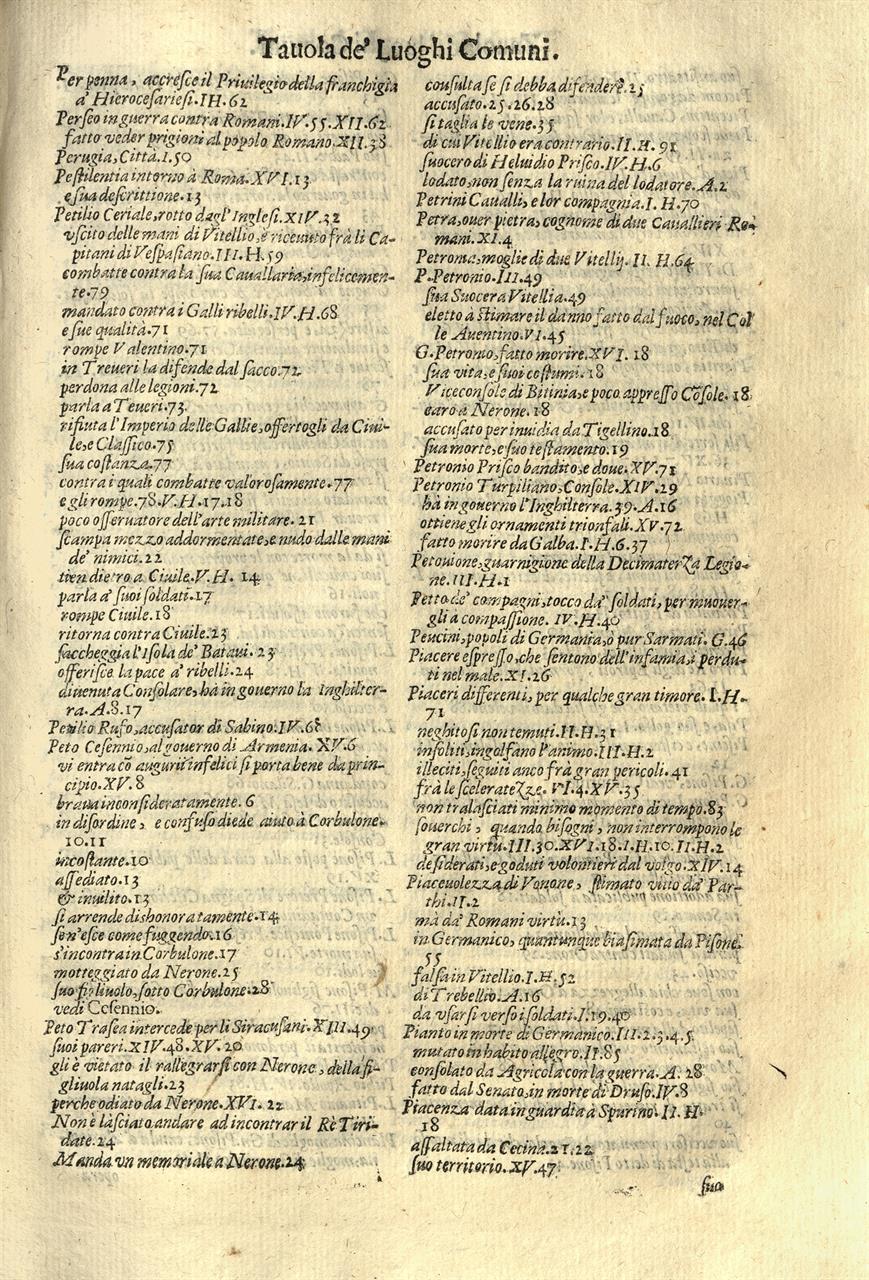 Tauola de' Luoghi Comuni.
Per penna, accresce il Priuilegio della franchigia
a' Hierocesariesi.IH.62
Perseo in guerra contra Romani.IV.55.XII.62
fatto veder prigioni al popolo Romano.XII.38
Perugia, Città.I.50
Pestilentia intorno à Roma.XVI.13
e sua descrittione.13
Petilio Ceriale, rotto dagl' Inglesi.XIV.32
vscito delle mani di Vitellio, è riceuuto frà li Ca-
pitani di Vespasiano.III.H.59
combatte contra la sua Cauallaria, infelicemen-
te.79
mandato contra i Galli ribelli.IV.H.68
e sue qualità.71
rompe Valentino.71
in Treueri la difende dal sacco.72
perdona alle legioni.72
parla a Teueri.73
rifiuta l'Imperio delle Gallie, offertogli da Ciui-
le, e Classico.75
sua costanza.77
contra i quali combatte valorosamente.77
e gli rompe.78.V.H.17.18
poco osseruatore dell'arte militare. 21
scampa mezzo addormentate, e nudo dalle mani
de' nimici.22
tien dietro a Ciuile.V.H. 14
parla a' suoi soldati.17
rompe Ciuile.18
ritorna contra Ciuile.23
saccheggia l'Isola de' Bataui. 23
offerisce la pace a' ribelli.24
diuenuta Consolare, hà in gouerno la Inghilter-
ra.A.8.17
Petilio Rufo, accusator di Sabino.IV.68
Peto Cesennio, al gouerno di Armenia. XV.6
vi entra cō augurij infelici si porta bene da prin-
cipio.XV.8
braua inconsideratamente. 6
in disordine, e confuso diede aiuto à Corbulone.
10.11
incostante.10
assediato.13
& inuilito.13
si arrende dishonoratamente.14
sen'esce come fuggendo.16
s'incontra in Corbulone.17
motteggiato da Nerone.25
suo figliuolo, sotto Corbulone.28
vedi Cesennio.
Peto Trasea intercede per li Siracusani.XIII.49
suoi pareri.XIV.48.XV.20
gli è vietato il rallegrarsi con Nerone, della fi-
gliuola natagli.23
perche odiato da Nerone.XVI. 22
Non è lasciato andare ad incontrar il Rè Tiri-
date.24
Manda vn memoriale a Nerone.24
consulta se si debba difendere.25
accusato.25.26.28
si taglia le vene.35
di cui Vitellio era contrario.II.H. 91
suocero di Heluidio Prisco.IV.H.6
lodato, non senza la ruina del lodatore.A.2
Petrini Caualli, e lor compagnia.I. H.70
Petra, ouer pietra, cognome di due Cauallieri Ro-
mani.XI.4
Petroma, moglie di due Vitellij. II. H.64
P.Petronio.III.49
sua Suocera Vitellia.49
eletto à stimare il danno fatto dal fuoco, nel Col
le Auentino.VI.45
G.Petronio, fatto morire.XVI. 18
sua vita, e suoi costumi. 18
Viceconsole di Bitinia, e poco appresso Cōsole. 18
caro à Nerone.18
accusato per inuidia da Tigellino.18
sua morte, e suo testamento.19
Petronio Prisco bandito, e doue.XV.71
Petronio Turpiliano, Console.XIV.29
hà in gouerno l'Inghilterra.39.A.16
ottiene gli ornamenti trionfali.XV.72
fatto morire da Galba.I.H.6.37
Petouione, guarnigione della Decimaterza Legio-
ne.III.H.1
Petto de' compagni, tocco da' soldati, per muouer-
gli a compassione. IV.H.40
Peucini, popoli di Germania, ò pur Sarmati. G.46
Piacere espresso, che sentono dell'infamia, i perdu-
ti nel male.XI.26
Piaceri differenti, per qualche gran timore. I.H.
71
neghitosi non temuti.II.H.31
insoliti, ingolfano l'animo.III.H.2
illeciti, seguiti anco frà gran pericoli.41
frà le sceleratezze. VI.4.XV.35
non tralasciati minimo momento di tempo.83
souerchi, quando bisogni, non interrompono le
gran virtù.III.30.XVI.18.I.H.10.II.H.2
desiderati, e goduti volontieri dal volgo.XIV.14
Piaceuolezza di Vonone, stimato vitio da' Par-
thi.II.2
mà da' Romani virtù.13
in Germanico, quantunque biasimata da Pisone.
55
falsa in Vitellio.I.H.52
di Trebellio.A.16
da vsarsi verso i soldati.I.19.40
Pianto in morte di Germanico.III.2.3.4.5.
mutato in habito allegro.II.85
consolato da Agricola con la guerra.A. 28
fatto dal Senato, in morte di Druso.IV.8
Piacenza data in guardia à Spurino. II. H.
18
assaltata da Cecina.21.22
suo territorio.XV.47
sua